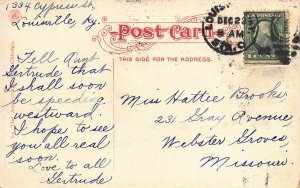 1334 Cypress St,
Louisville, Ky.
Tell Aunt
Gertrude that
I shall soon
be speeding
westward.
I hope to see
you all real
soon.
Love to all
Gertrude
Post Card
THIS SIDE FOR THE ADDRESS.
DEC 22
8 AM
Miss Hattie Brooks
231 Gray Avenue
Webster Groves,
Missouri.